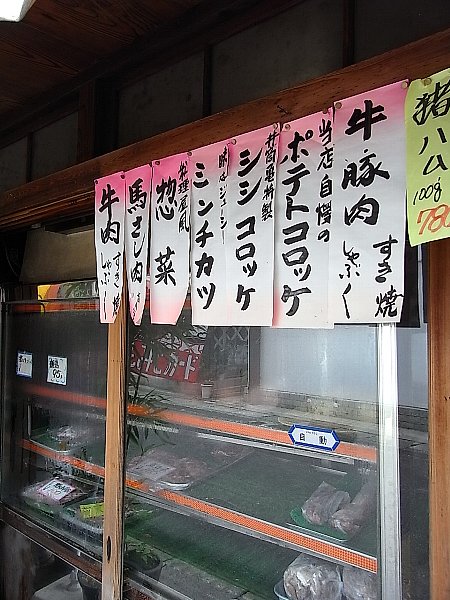 猪ハム
100g
780
牛豚肉
すき焼
しゃぶしゃぶ
当店自慢の
ポテトコロッケ
シシコロッケ
ミンチカツ
料理屋風
惣菜
馬さし肉
牛肉
すき焼
しゃぶしゃぶ
自動